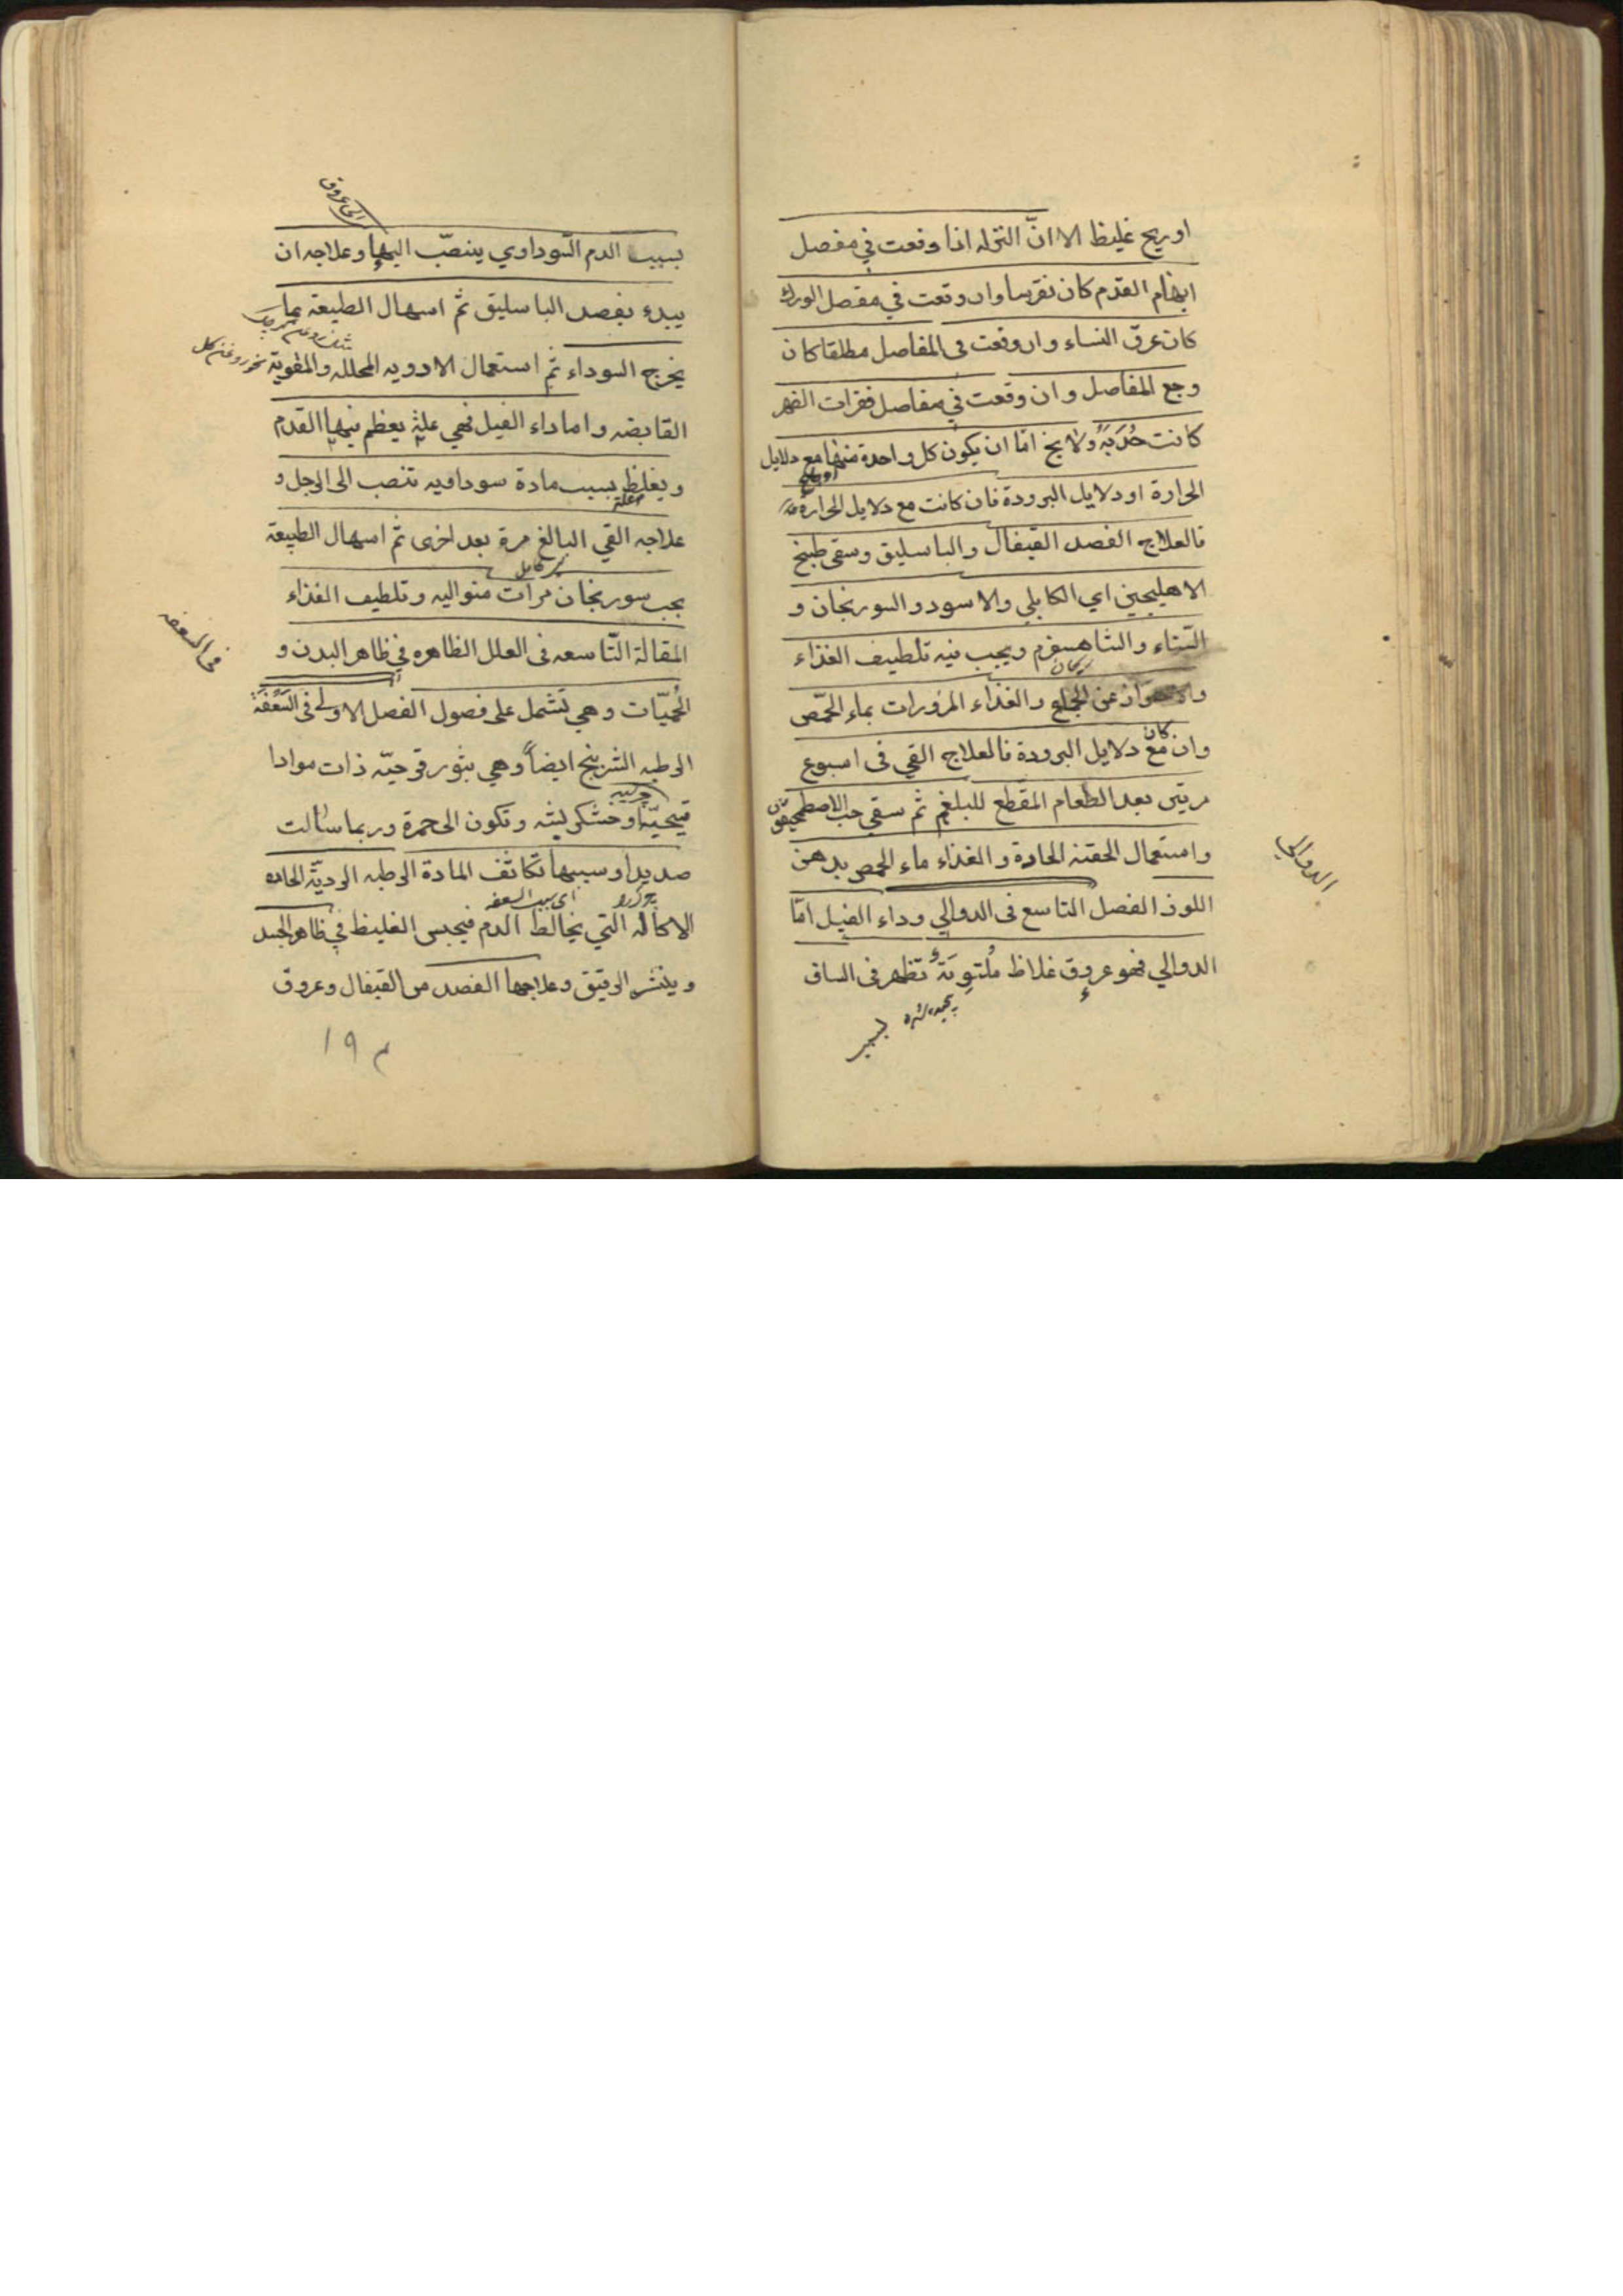 او ريح غليظ الا انّ النزله اذا وقعت في مفصل
ابهام القدم كان نقرسا وان وقعت في مفصل الورك
كان عرق النساء وان وقعت فى المفاصل مطلقا كان
وجع المفاصل وان وقعت في مفاصل فقرات الظهر
كانت حُدَبَةً ولا يخ امّا ان يكون كل واحدة منها مع دلايل
الحرارة او دلايل البرودة فان كانت مع دلايل الحرارة
فالعلاج الفصد القيفال والباسليق وسقى طبيخ
الاهليجين اي الكابلي والاسود والسورنجان و
السّناء والشاهسفرم ويجب فيه تلطيف الغذاء
ريحان
عن الجماع والغذاء المزورات بماء الحمّص
كان
وان مع دلايل البرودة فالعلاج القي فى اسبوع
مرتين بعد الطعام المقطع للبلغم ثم سقي حب الاصطمحيقون
واستعمال الحقنه الحادة والغذاء ماء الحمص بدهن
الدوالي
اللوز الفصل التاسع فى الدوالي وداء الفيل امّا
الدوالي فهو عروق غلاظ مُلتوِيَة تظهر فى الساق
بسبب
الى عروق
بسبب الدم السّوداوي ينصّب اليها وعلاجه ان
يبدء بفصد الباسليق ثم اسهال الطبيعة بما
يخرج السوداء ثم استعمال الادويه المحلله والمقوية
القابضه واما داء الفيل فهي علة يعظم فيها القدم
ويغلظ بسبب مادة سوداويه تنصب الى الرجل و
علاجه القي البالغ مرة بعد اخرى ثم اسهال الطبيعة
بحب سورنجان مرات متواليه وتلطيف الغذاء
فى السعفه
المقالة التّاسعه فى العلل الظاهره في ظاهر البدن و
الحُميّات وهي تشمل على فصول الفصل الاول فى السَّعْفَة
الرطبه الشرينج ايضاً وهي بثور قرحيّه ذات موادا
قيحيّة وخشكريشه وتكون الى حمرة وربما سالت
صديدا وسببها تكاثف المادة الرطبه الرديّة الحاده
اى سبب السعفه
الاكاله التي يخالط الدم فيحبس الغليظ في ظاهر الجسد
وينشر الرقيق وعلاجها الفصد من القيفال وعروق
م ١٩